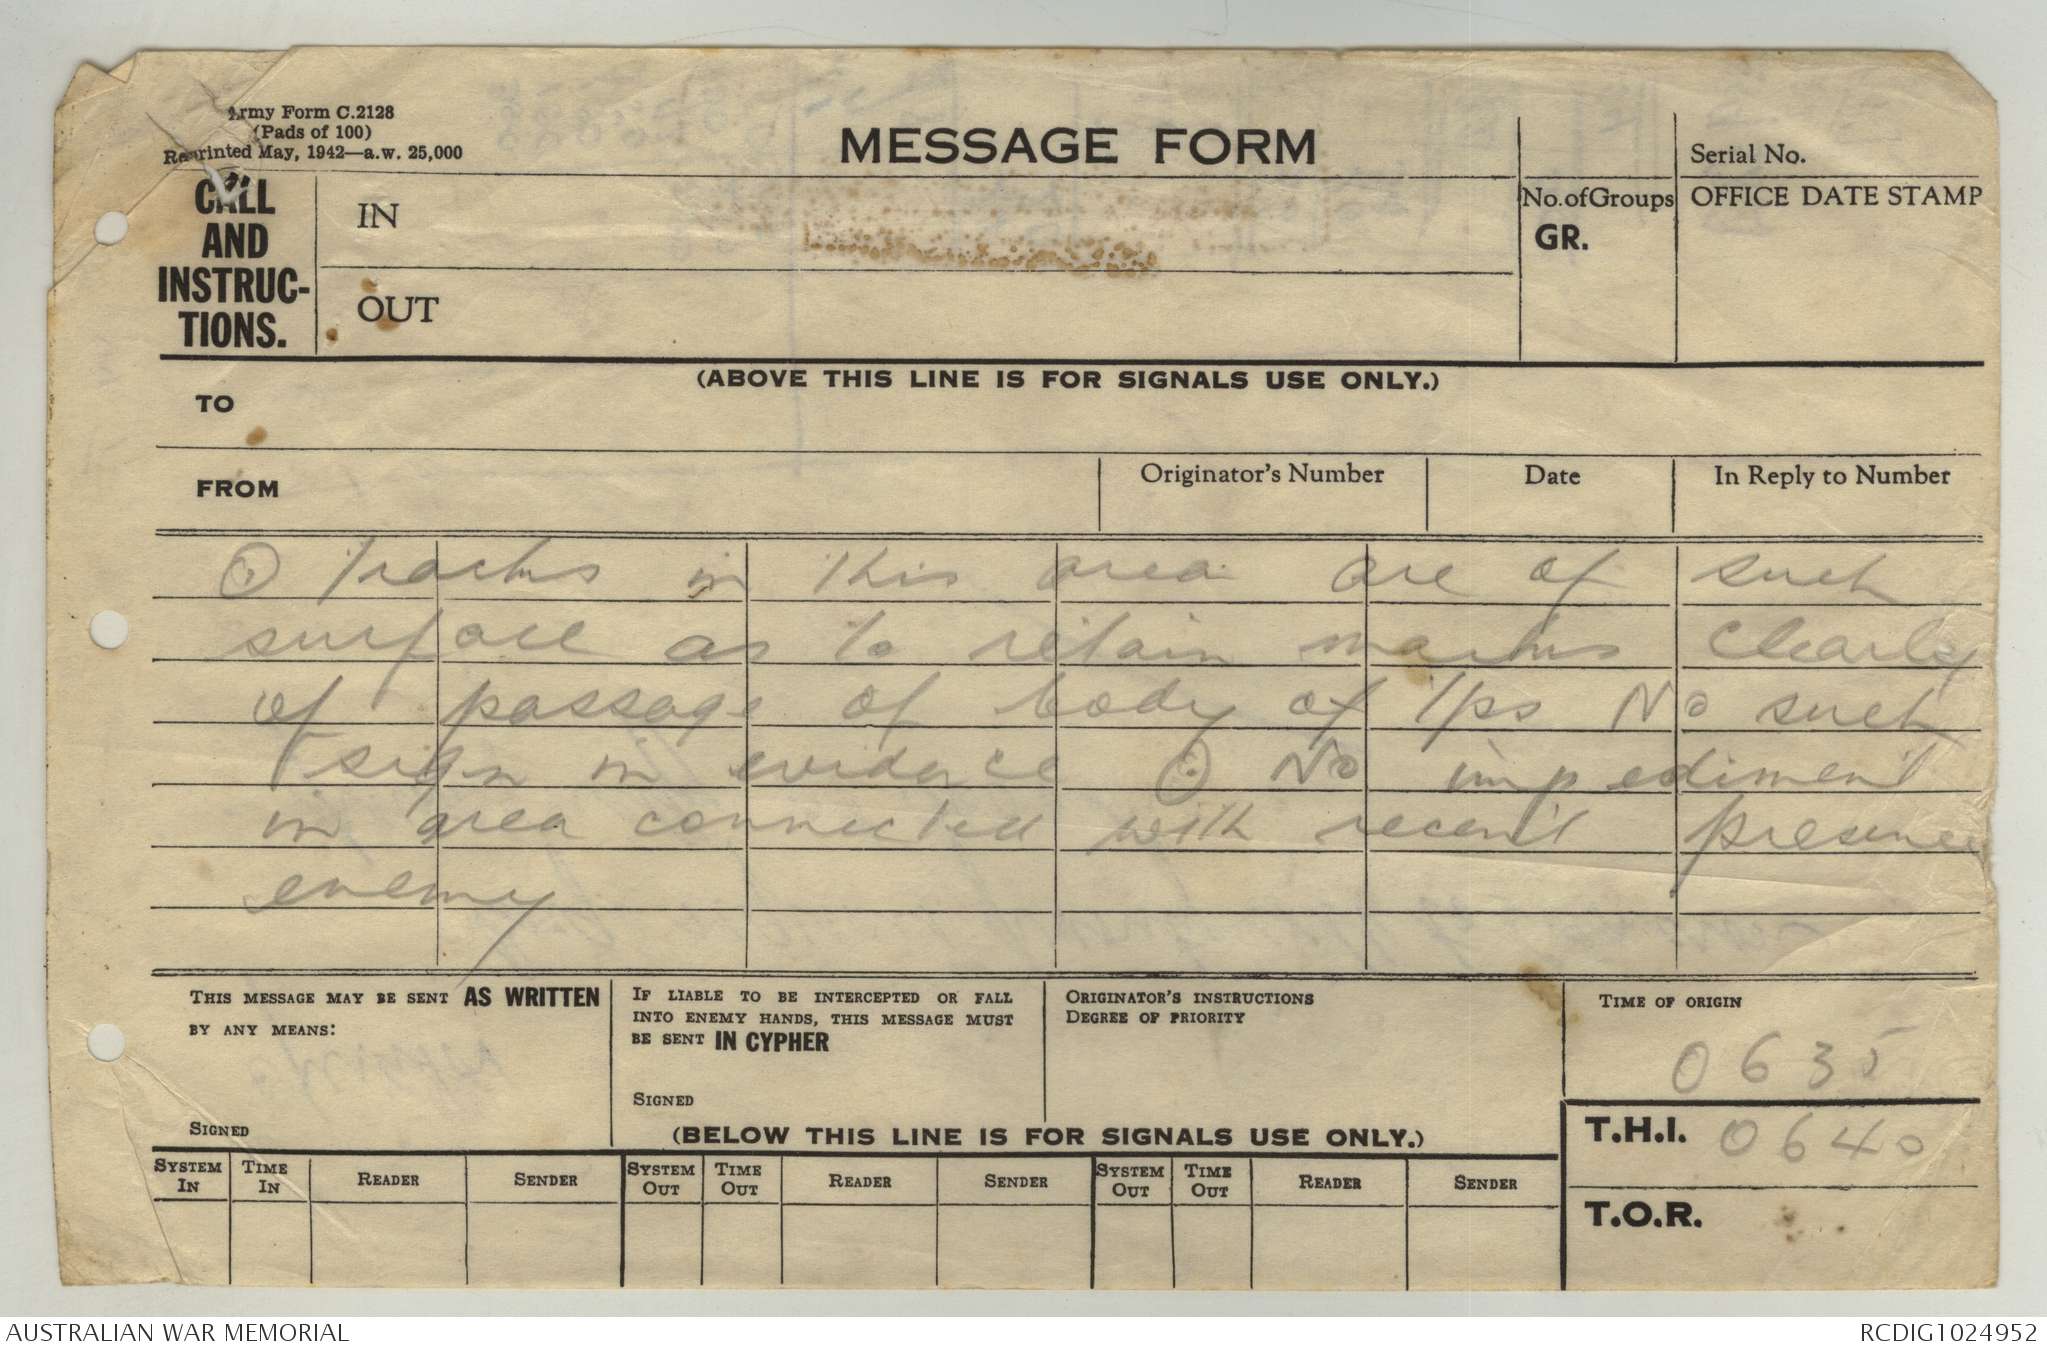 Army Form C.2128
(Pads of 100)
Reprinted May, 1942—a.w. 25,000
MESSAGE FORM
Serial No.
CALL
AND
INSTRUC-
TIONS.
IN
OUT
No. of Groups
GR.
OFFICE DATE STAMP
(ABOVE THIS LINE IS FOR SIGNALS USE ONLY.)
TO
FROM
Originator's Number
Date
In Reply to Number
⊙ Tracks in this area are of such
surface as to retain marks clearly
of passage of body of tps No such
sign in evidence ⊙ No impediment
in area connected with recent presence
enemy
THIS MESSAGE MAY BE SENT AS WRITTEN
BY ANY MEANS:
SIGNED
IF LIABLE TO BE INTERCEPTED OR FALL
INTO ENEMY HANDS, THIS MESSAGE MUST
BE SENT IN CYPHER
SIGNED
ORIGINATOR'S INSTRUCTIONS
DEGREE OF PRIORITY
TIME OF ORIGIN
0635
T.H.I. 0640
T.O.R.
(BELOW THIS LINE IS FOR SIGNALS USE ONLY.)
SYSTEM IN TIME IN READER SENDER SYSTEM OUT TIME OUT READER SENDER SYSTEM OUT TIME OUT READER SENDER
AUSTRALIAN WAR MEMORIAL
RCDIG1024952